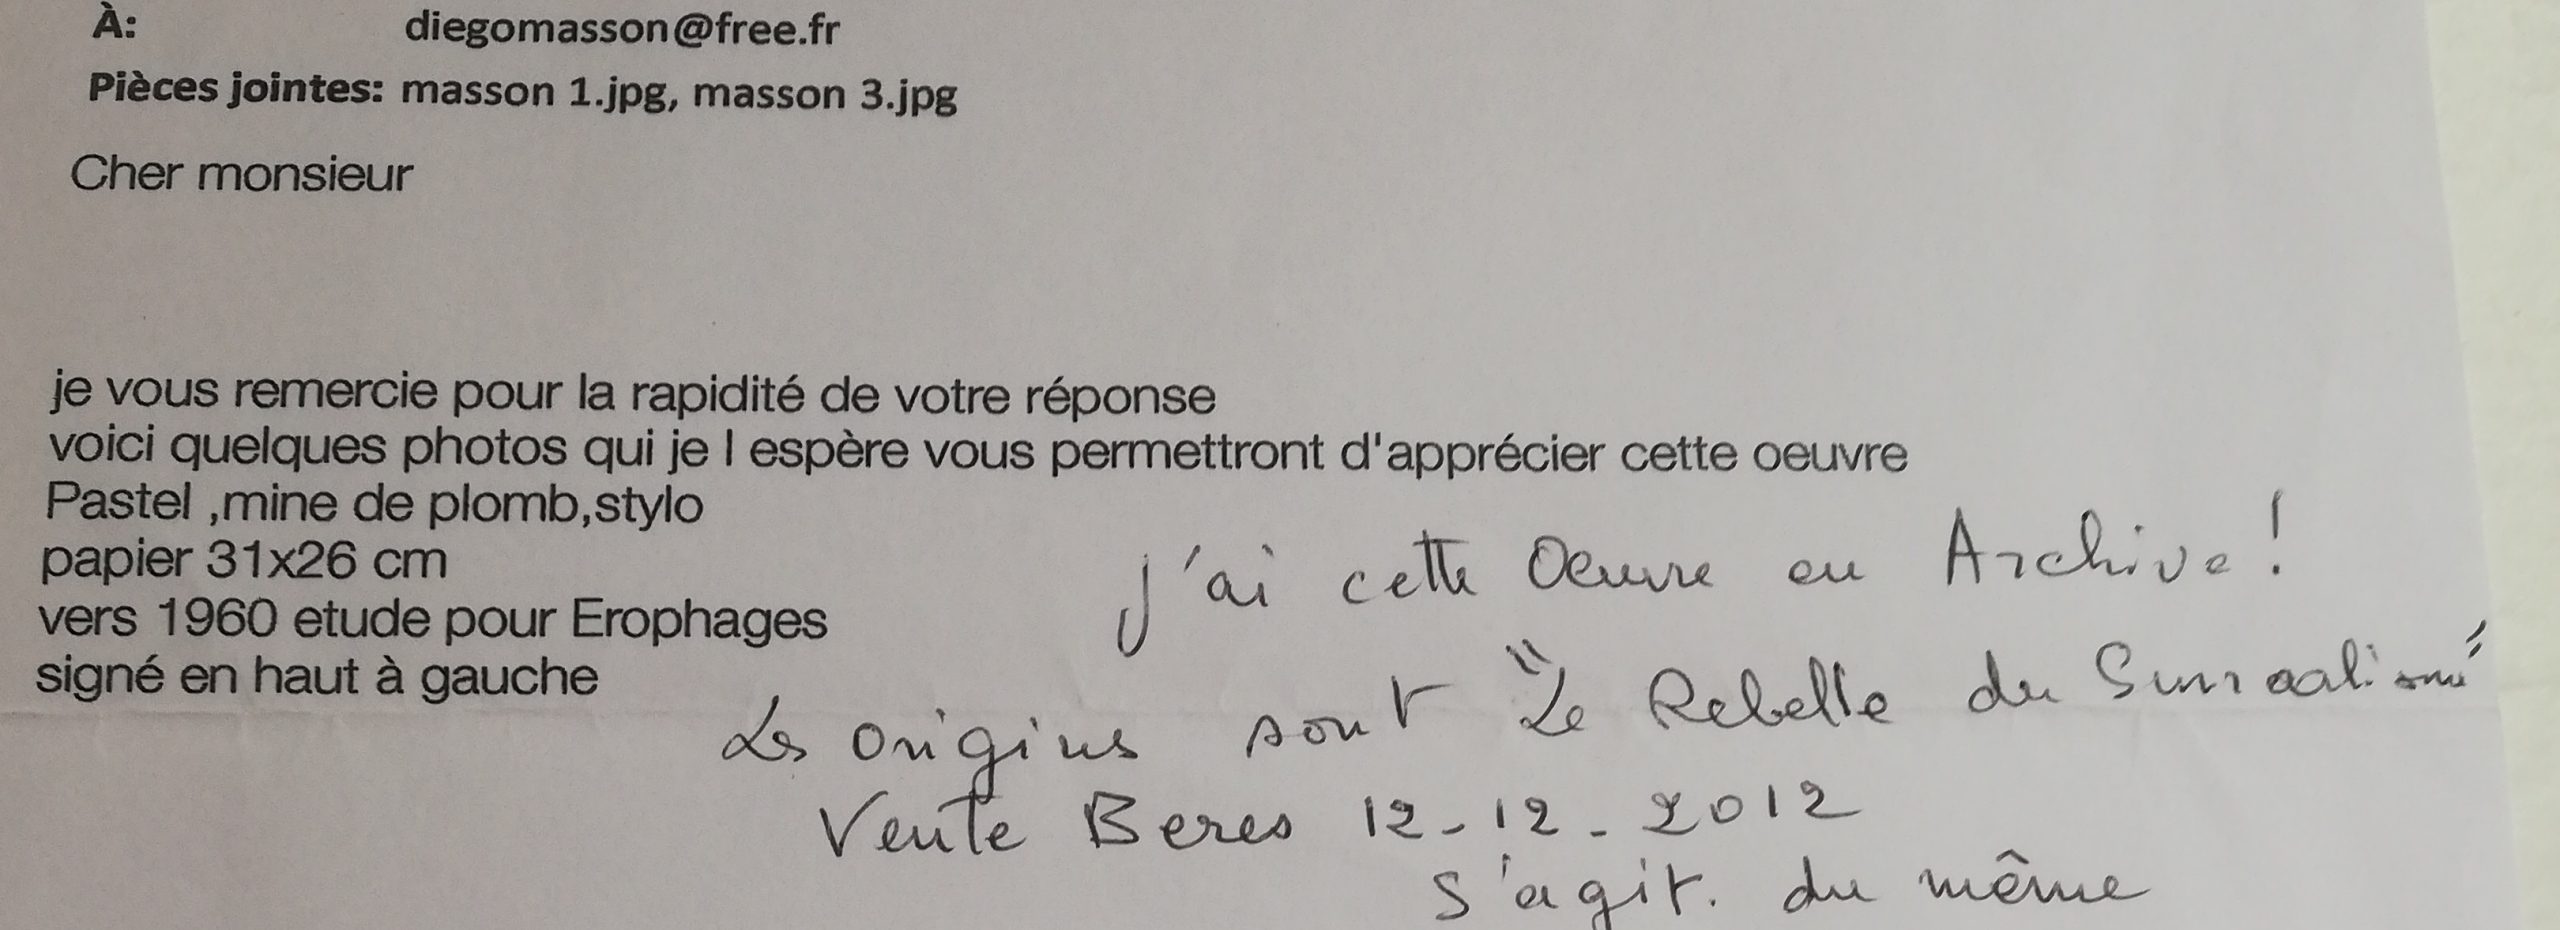 À: diegomasson@free.fr
Pièces jointes: masson 1.jpg, masson 3.jpg
Cher monsieur
je vous remercie pour la rapidité de votre réponse
voici quelques photos qui je l espère vous permettront d'apprécier cette oeuvre
Pastel ,mine de plomb,stylo
papier 31x26 cm
vers 1960 etude pour Erophages
signé en haut à gauche
J'ai cette Oeuvre en Archive!
Les origines sont "Le Rebelle du Surréalisme"
Vente Beres 12-12-2012
s'agit. du même